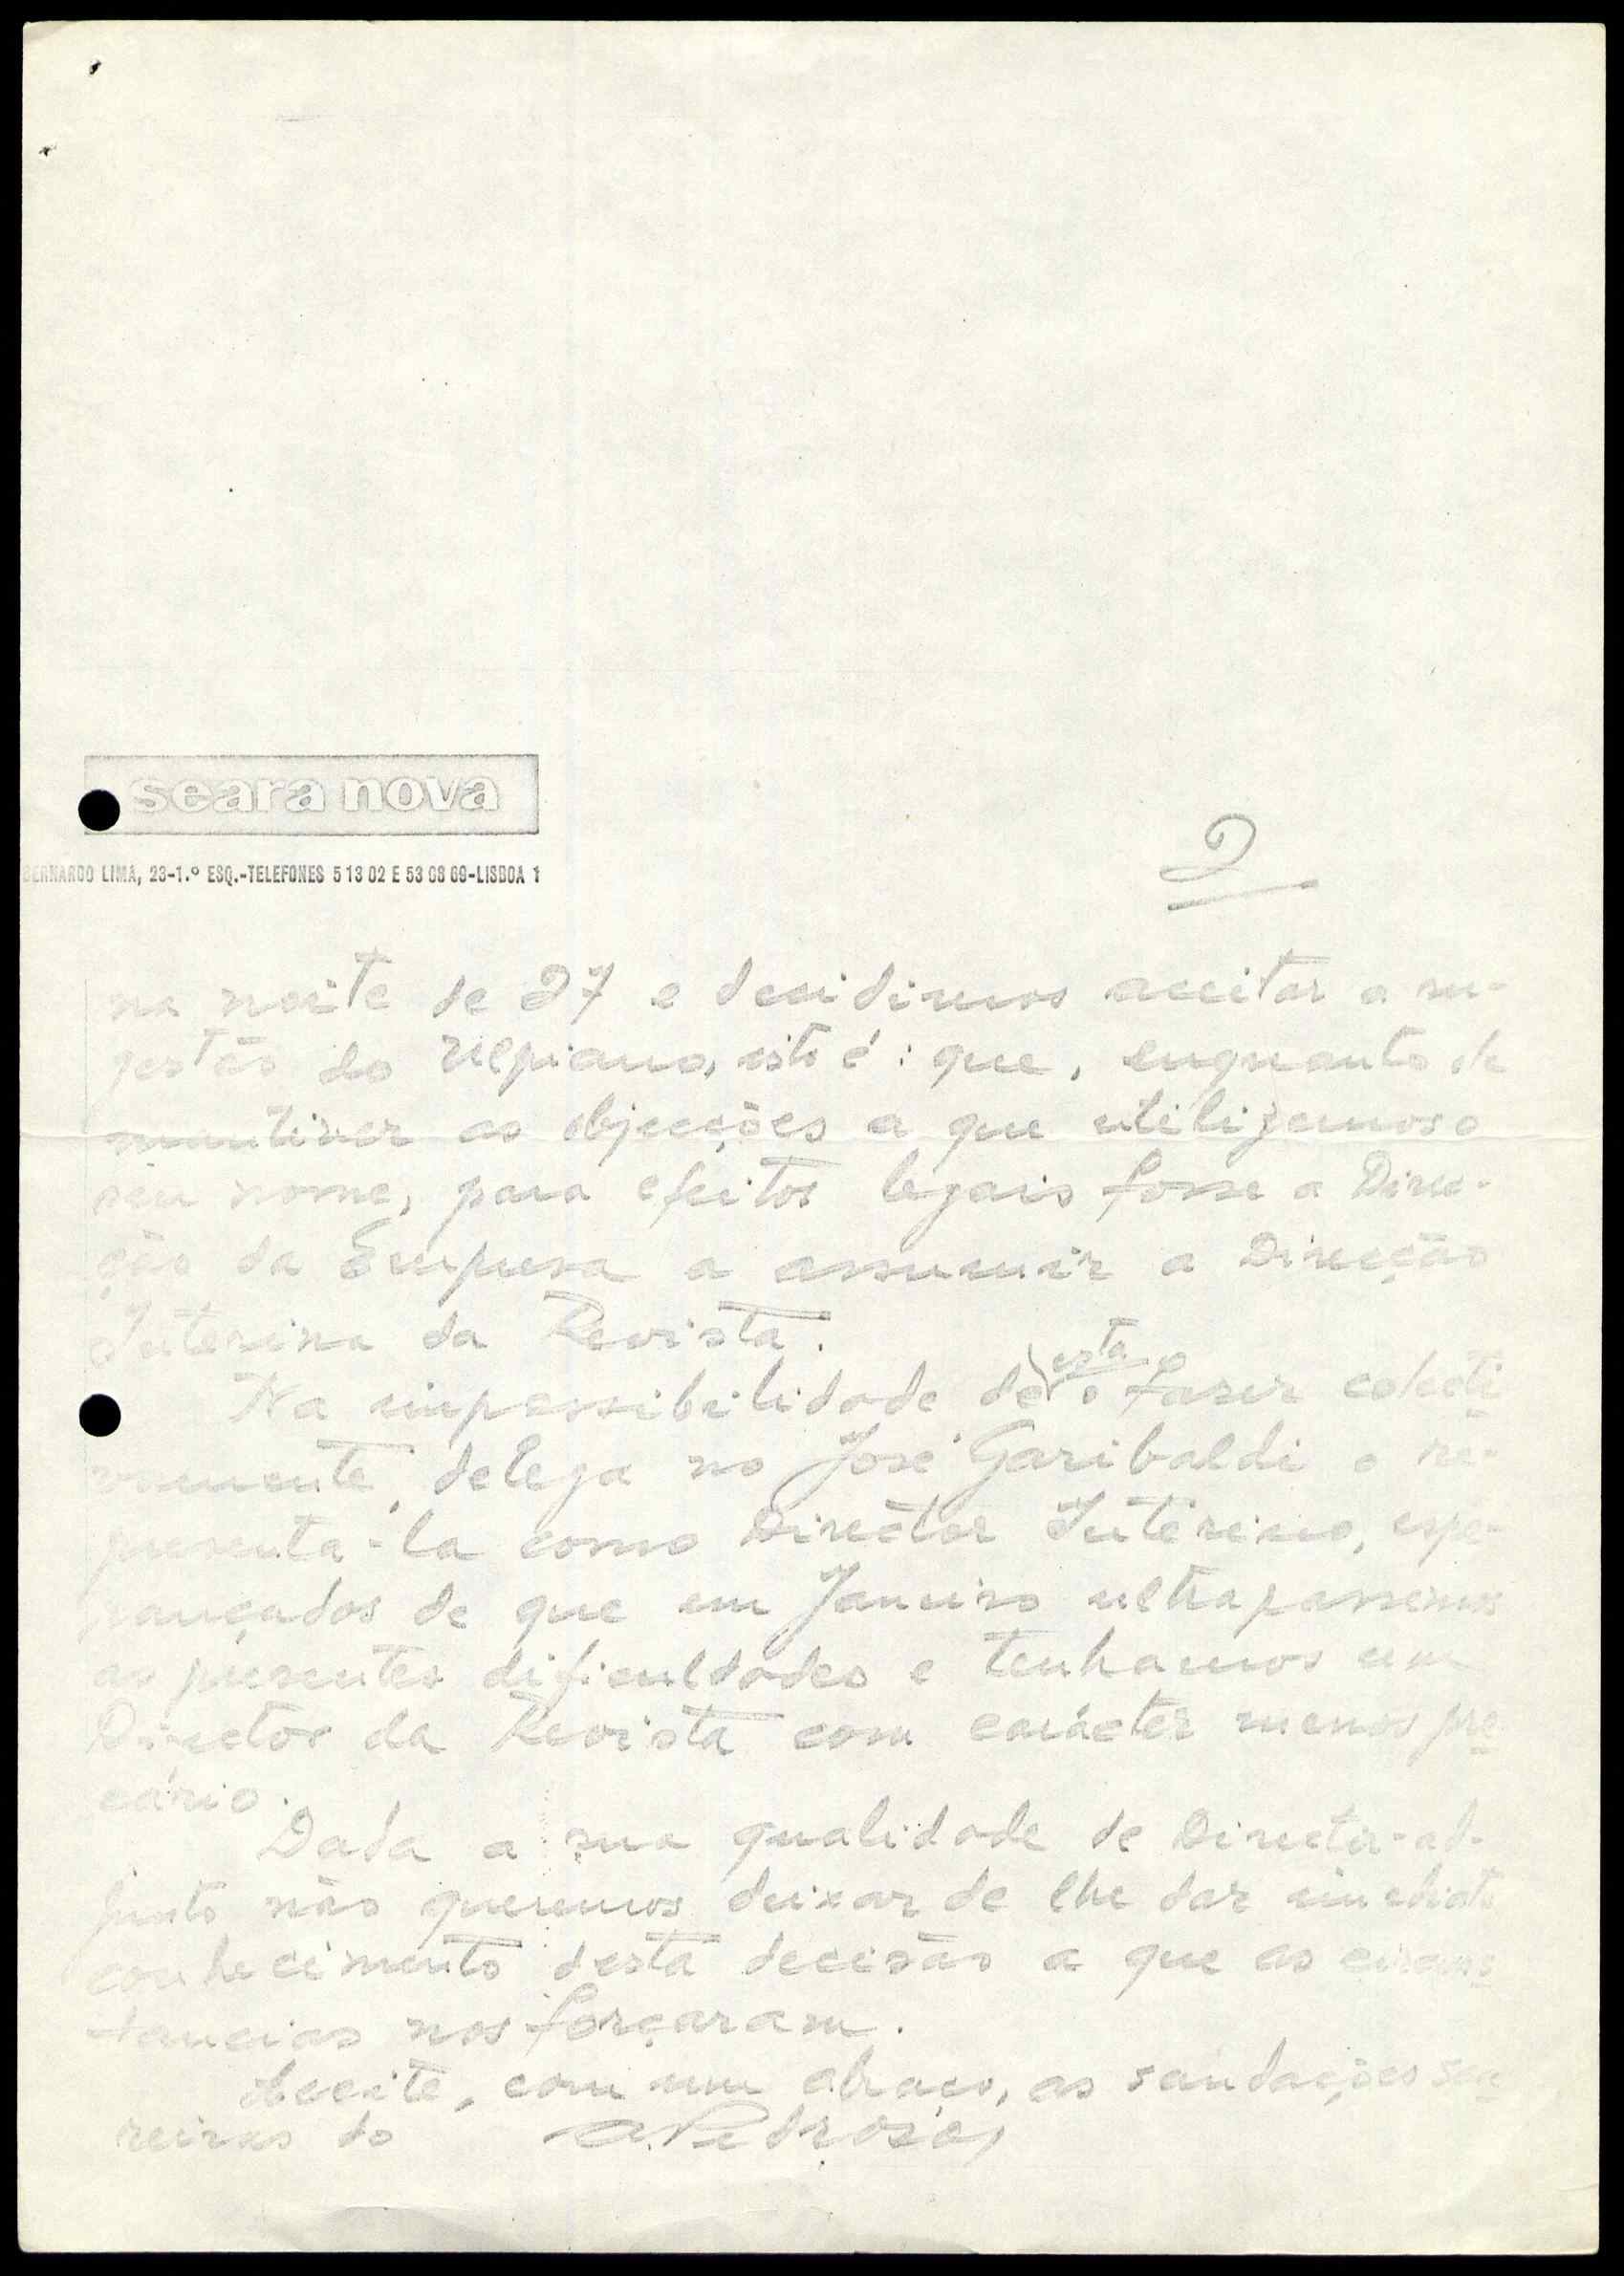 seara nova
BERNARDO LIMA, 23-1.º ESQ.-TELEFONES 5 13 02 E 53 08 69-LISBOA 1
2
na noite de 27 e decidimos aceitar a su-
gestão do Ulpiano, isto é: que, enquanto se
mantiver as objecções a que utilizemos o
seu nome, para efeitos legais fosse a Direc-
ção da Empresa a assumir a Direcção
Interina da Revista.
Na impossibilidade de esta o fazer colecti
vamente, delega no José Garibaldi o re-
presenta-la como Director Interino, espe-
rançados de que em Janeiro ultrapassemos
as presentes dificuldades e tenhamos um
Director da Revista com carácter menos pre
cário.
Dada a sua qualidade de Director-ad-
junto não queremos deixar de lhe dar imediato
conhecimento desta decisão a que as circuns
tancias nos forçaram.
Aceite, com um abraço, as saudações sea
reiras do A. Pedrosa,